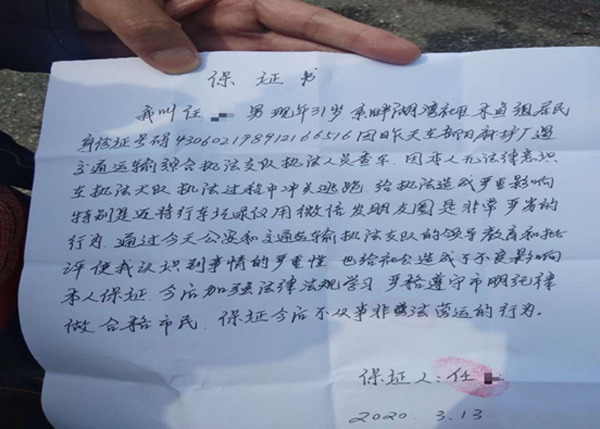 保证书
我叫任 男 现年31岁 系畔湖湾社区 采鱼组居民
身份证号码430602198912166516 因昨天在部 麻纺厂遇
交通运输综合执法支队执法人员查车. 因本人无法律意识
在执法大队执法过程中冲关逃跑. 给执法造成严重影响
特别是还将行车记录仪用微信发朋友圈是非常严肃的
行为. 通过今天公安和交通运输执法支队的领导教育和批
评使我认识到事情的严重性. 也给社会造成了不良影响
本人保证. 今后加强法律法规学习. 严格遵守市明纪律
做合格市民. 保证今后不从事非法营运的行为。
保证人: 任
2020. 3.13